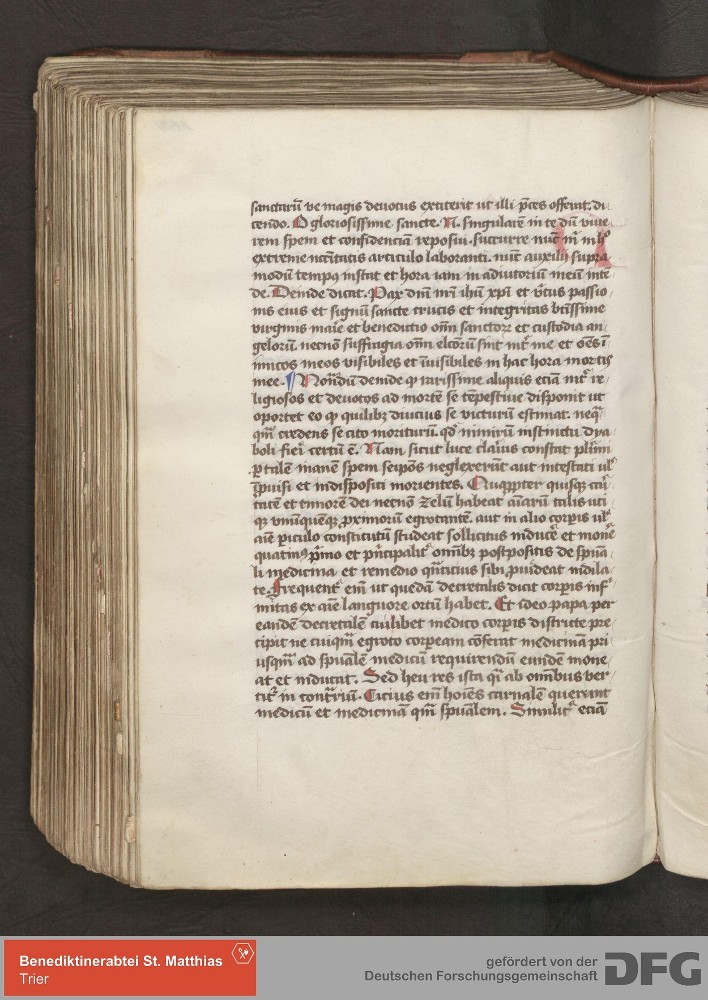 sanctarū ve magis deuotus extiterit ut illi p̄ces offerat. di
cendo. O gloriosissime sancte. N. singularē in te dn̄ viue
rem spem et confidenciā reposui. succurre nūc m̄ in hͦ
extreme nc̄cītatis articulo laboranti. nūc auxilij supra
modū tempꝰ instat et hora iam in adiutoriū meū inte
de. Deinde dicat. Pax dn̄i nr̄i ihū xp̄i et v̄tus passio
nis eius et signū sancte crucis et integritas btīssime
virginis marie et benedictio om̄ sanctorꝝ et custodia an
gelorū. necnō suffragia om̄ elc̄orū sint int̄ me et oēs ī
imicos meos visibiles et īuisibiles in hac hora mortis
mee. ¶ Nondū deinde qꝫ rarissime aliquis eciā int̄ re
ligiosos et deuotos ad mortē se tēpestiue disponit ut
oportet eo qꝫ quilibꝫ diucius se victurū estimat. neqꝫ
qm̄ credens se cito moriturū. qd̓ nimirū instinctu dya
boli fieri certū ē. Nam sicut luce clarius constat plīmi
ꝑ talē inanē spem seipōs neglexerūt aut intestati ul̓
īpuisi et indispositi morientes. Quapp̄ter quisqꝫ cari
tatē et timorē dei necnō zelū habeat aīarū talis uti
qꝫ vnūquēqꝫ ꝓximorū egrotantē. aut in alio corꝑis ul̓
aīe ꝑiculo constitutū studeat sollicitius inducē et monē
quatinꝰ p̄mo et p̄ncipalit̄ om̄ibꝫ postpositis de sp̄ua
li medicina et remedio qn̄ticius sibi ꝓuideat indila
te. Frequent̄ em̄ ut quedā decretalis dicit corꝑis inf̄
mitas ex aīe languore ortū habet. Et ideo papa per
eandē decretalē cuilibet medico corꝑis districte pre
cipit ne cuiqm̄ egroto corpeam cōferat medicinā pri
usqm̄ ad sp̄ualē medicū requirendū eundē mone
at et inducat. Sed heu res ista qͣi ab omībus ver
tit̄ in contr̄riū. Cicius em̄ hoīes carnalē querunt
medicū et medicinā qm̄ sp̄ualem. Similit̄ eciā
Benediktinerabtei St. Matthias
Trier
gefördert von der
Deutschen Forschungsgemeinschaft
DFG